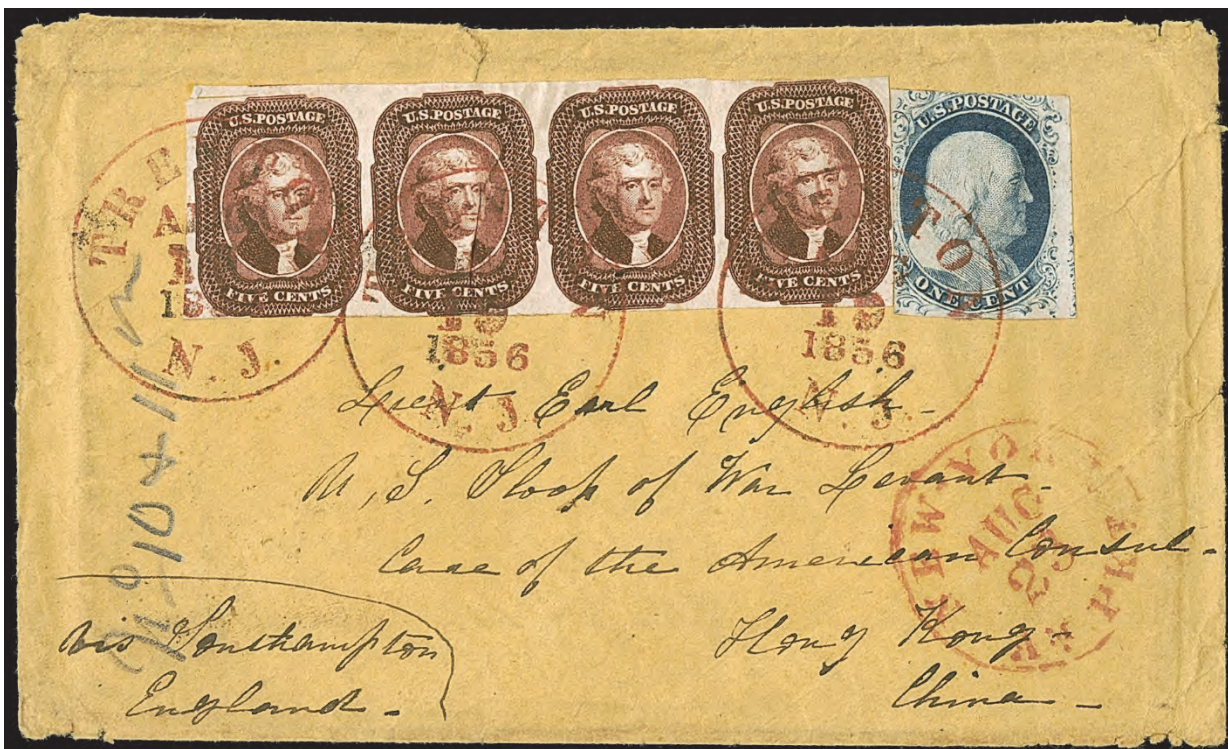 U.S. POSTAGE
FIVE CENTS
U.S. POSTAGE
FIVE CENTS
U.S. POSTAGE
FIVE CENTS
U.S. POSTAGE
FIVE CENTS
U.S. POSTAGE
ONE CENT
TRE
N. J.
1856
N. J.
TO
19
1856
N. J.
Lieut Earl English -
U, S, Sloop of War Levant -
Care of the American Consul -
Hong Kong -
China -
via Southampton
England -
NEW YO
AUG
23